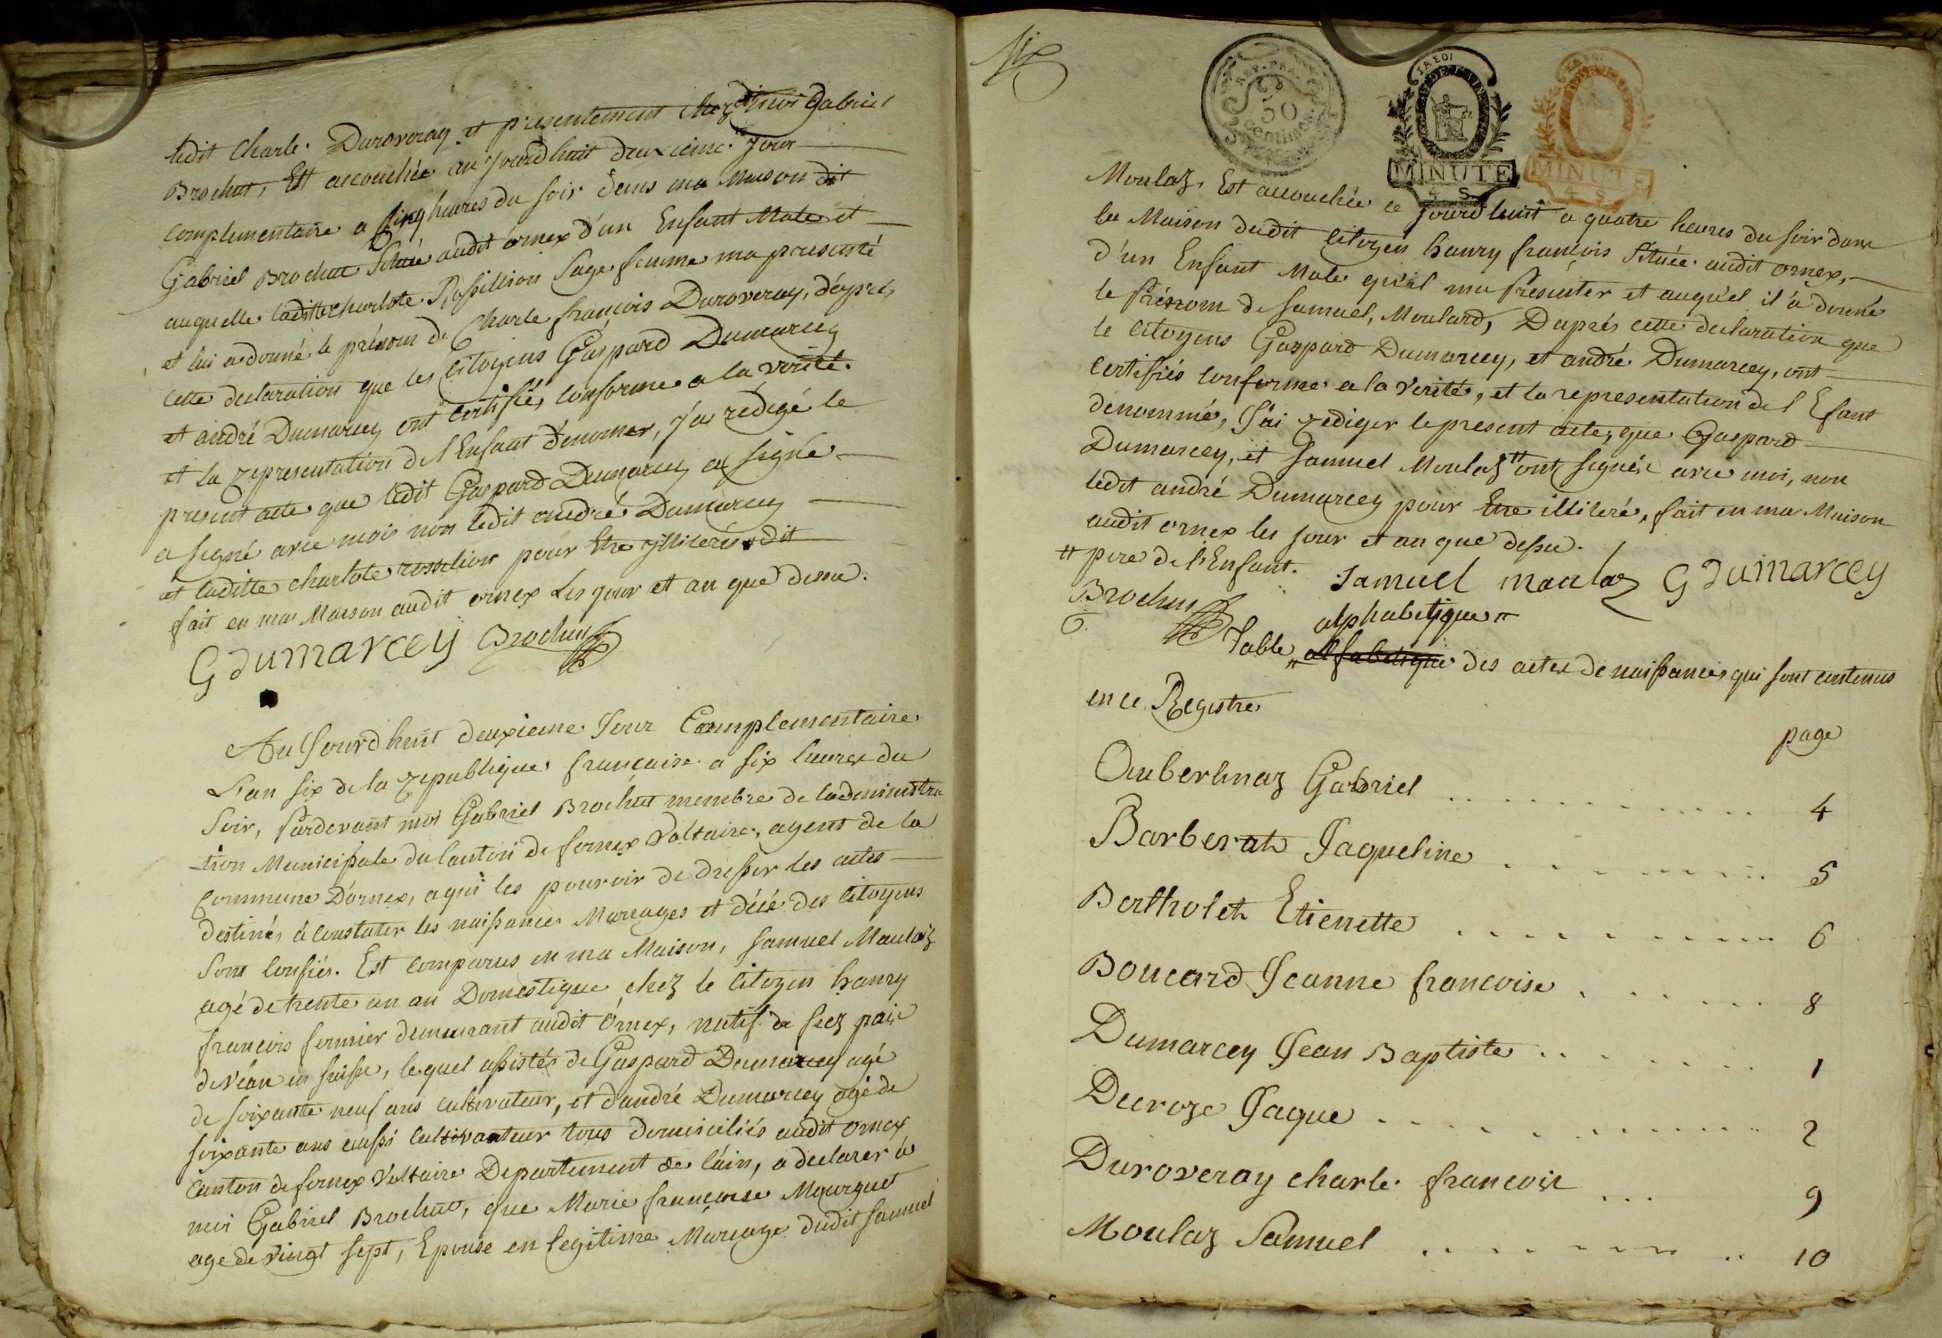 ledit Charle. Duroveray et presentement chez moi Gabriel
Brochut, Est accouchée au jourdhuit deuxieme. Jour
complementaire a cinq heures du soir dans ma Maison dit
Gabriel Brochut Situé audit ornex d'un Enfant Male et
auquelle laditte charlote Rossillion Sage femme ma presenté
et lui a donné le prénom de Charle françois Duroveray, d'après
cette declaration que les Citoyens Gaspard Dumarcey
et andré Dumarcey ont certifié, conforme a la vérité.
et la representation de l'Enfant denomer, j'ai redigé le
present acte que ledit Gaspard Dumarcey a signé
a signé avec mois non ledit andré Dumarcey
et laditte charlote rossilion pour Etre illiterés dit
fait en ma Maison audit ornex Les jour et an que dessu.
G dumarcey Brochut
Aujourdhuit deuxieme Jour Complementaire
L'an six de la republique francaise a six heures du
Soir, Pardevant moi Gabriel Brochut membre de ladeministra
-tion Municipale du Canton de fernex Voltaire, agent de la
Commune D'ornex, a qui les pouvoir de dresser les actes
destiné, à constater les naissances Mariages et décé des Citoyens
Sont confiés. Est comparus en ma Maison, Samuel Moulaz
agé de trente un an Domestique chez le Citoyen hanry
francois fermier demeurant audit Ornex, natif de
de véau en suisse, lequel assistés de Gaspard Dumarcey agé
de soixante neuf ans cultivateur, et d'andré Dumarcey agé de
soixante ans aussi cultivanteur tous domiciliés audit ornex
Canton de fernex Voltaire Departement de l'ain, a declarer à
moi Gabriel Brochut, que Marie françoise Mourguet
age de vingt sept, Epouse en legitime Mariage dudit samuel
six
REP. FRA.
50
centimes
LA LOI
MINUTE
4 S.
LA LOI
MINUTE
4 S.
Moulaz, Est accouchée ce jourdhuit a quatre heures du soir dans
la Maison dudit Citoyen hanry francois Située audit ornex,
d'un Enfant Male qu'il ma Presenter et auquel il a donné
le Prénom de Samuel, Moulard, Daprés cette declaration que
le Citoyens Gaspard Dumarcey, et andré Dumarcey, ont
Certifiés conforme a la verité, et la representation de l Efant
denommé, J'ai rediger le present acte, que Gaspard
Dumarcey, et Samuel Moulaz # ont signé, avec moi, non
ledit andré Dumarcey pour Etre illiteré, fait en ma Maison
audit ornex les jour et an que dessu.
# pere de l'Enfant. Samuel moulaz G dumarcey
Brochut
alphabetique
Table alfabetique des actes de naissances qui sont contenus
en ce Registre
page
Auberlinaz Gabriel 4
Barberat Jaqueline 5
Bertholet Etienette 6
Boucard Jeanne francoise 8
Dumarcey Jean Baptiste 1
Duroze Jaque 2
Duroveray charle francois 9
Moulaz Samuel 10